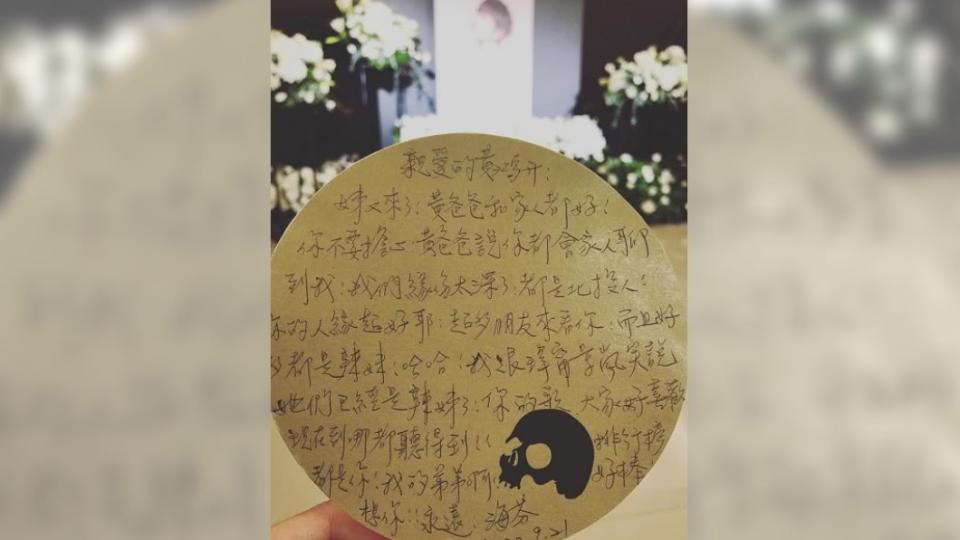 親愛的黃鴻升：
姊又來了！黃爸爸和家人都好！
你不要擔心 黃爸爸說你都會家人聊
到我！我們緣份太深了 都是北投人！
你的人緣超好耶！超多朋友來看你 而且好
多都是辣妹！哈哈！我跟瑋甯 笑說
她們已經是辣妹了！你的歌 大家好喜歡
現在到哪都聽得到！！ 排行榜
都是你！我的弟弟啊！ 好棒！
想你！！永遠 海芬
9.21